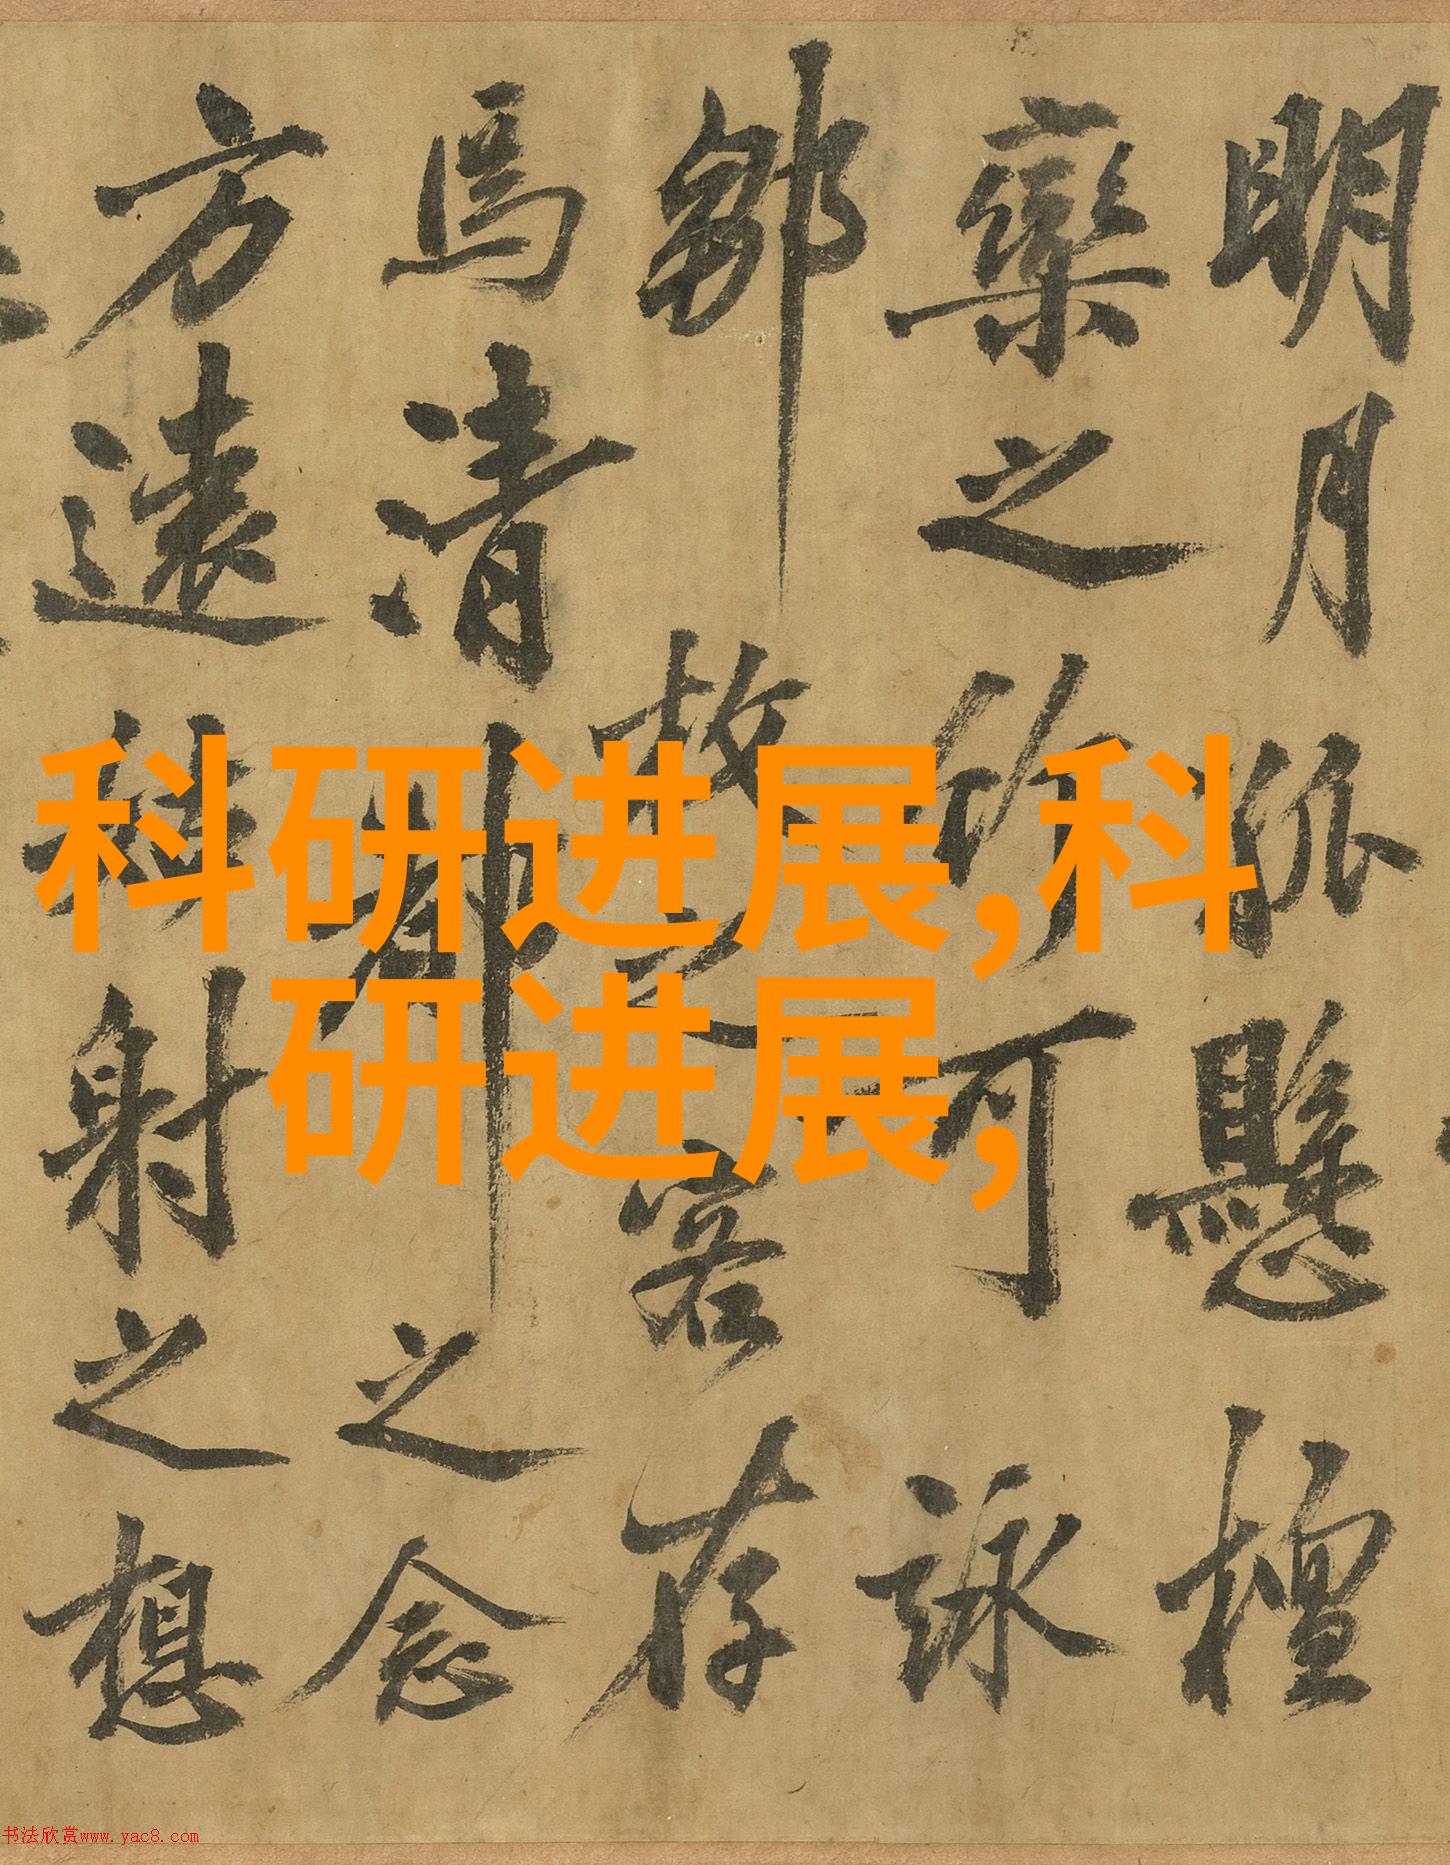 明月孤懸檀
欒之作可詠
鄒枚之客存
焉清都之念
方遠射之想
科研进展,科
研进展,
书法欣赏www.yac8.com